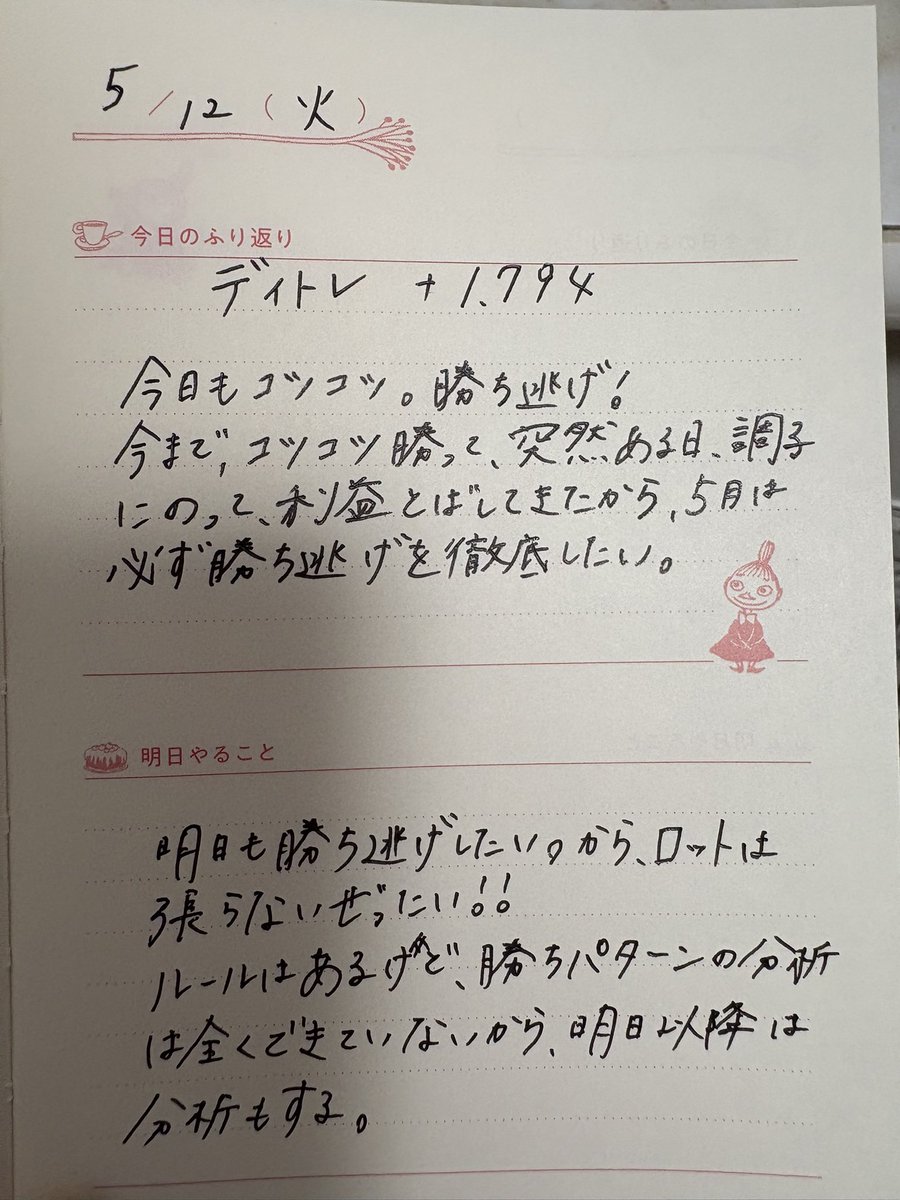 5/12(火)
今日のふり返り
デイトレ +1.794
今日もコツコツ。勝ち逃げ!
今まで、コツコツ勝って、突然ある日、調子
にのって、利益とばしてきたから、5月は
必ず勝ち逃げを徹底したい。
明日やること
明日も勝ち逃げしたい。から、ロットは
張らないぜったい!!
ルールはあるけど、勝ちパターンの分析
は全くできていないから、明日以降は
分析もする。